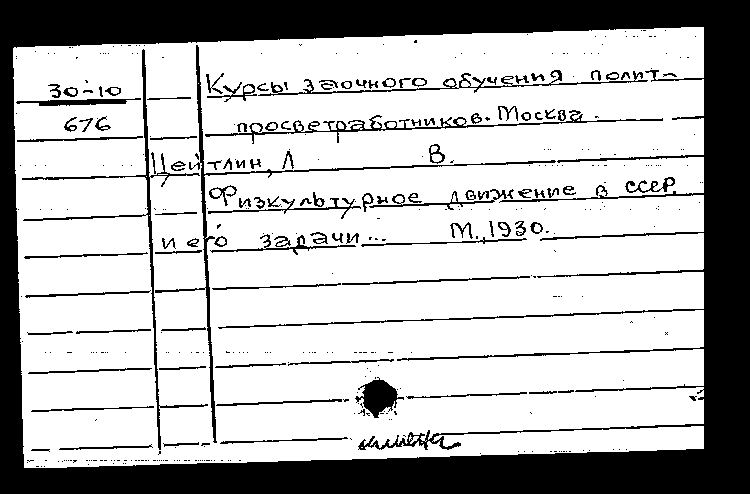 30-10
676
Курсы заочного обучения полит-
просветработников. Москва.
Цейтлин, Л В.
Физкультурное движение в СССР
и его задачи... М., 1930.